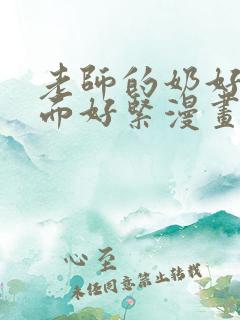 老師的奶好
而好緊漫畫
心至
未任同意禁止转载